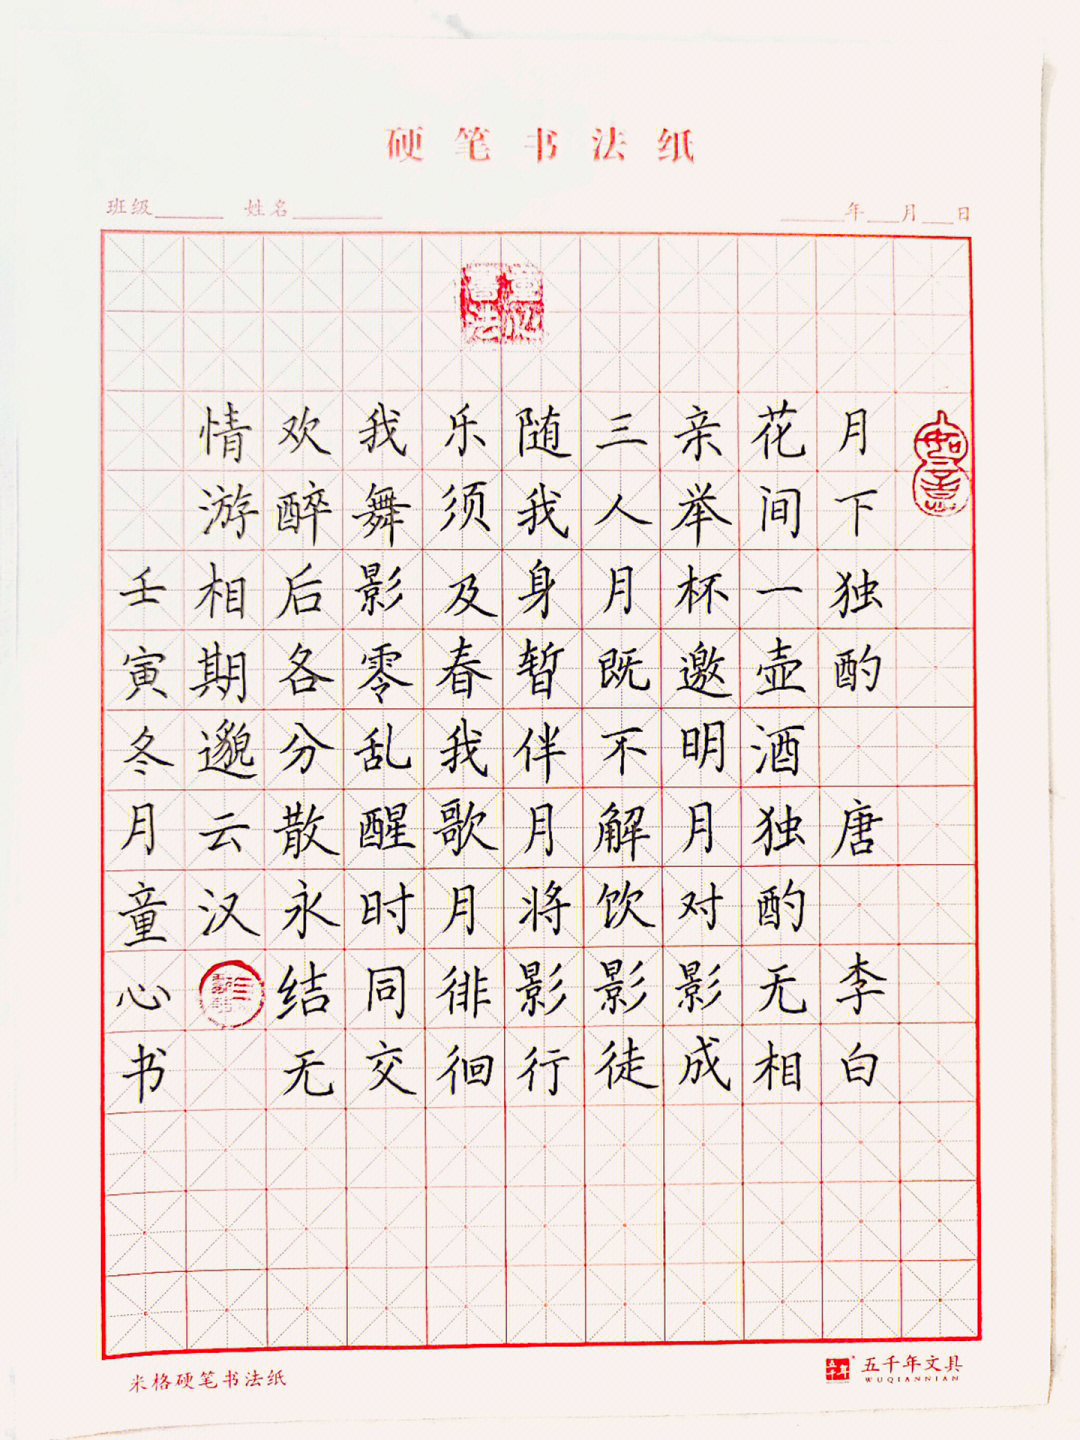 硬笔书法纸
班级 姓名 年 月 日
如意
童心书法
月下独酌 唐 李白
花间一壶酒独酌无相
亲举杯邀明月对影成
三人月既不解饮影徒
随我身暂伴月将影行
乐须及春我歌月徘徊
我舞影零乱醒时同交
欢醉后各分散永结无
情游相期邈云汉
壬寅冬月童心书
米格硬笔书法纸
五千年
五千年文具
WUQIANNIAN